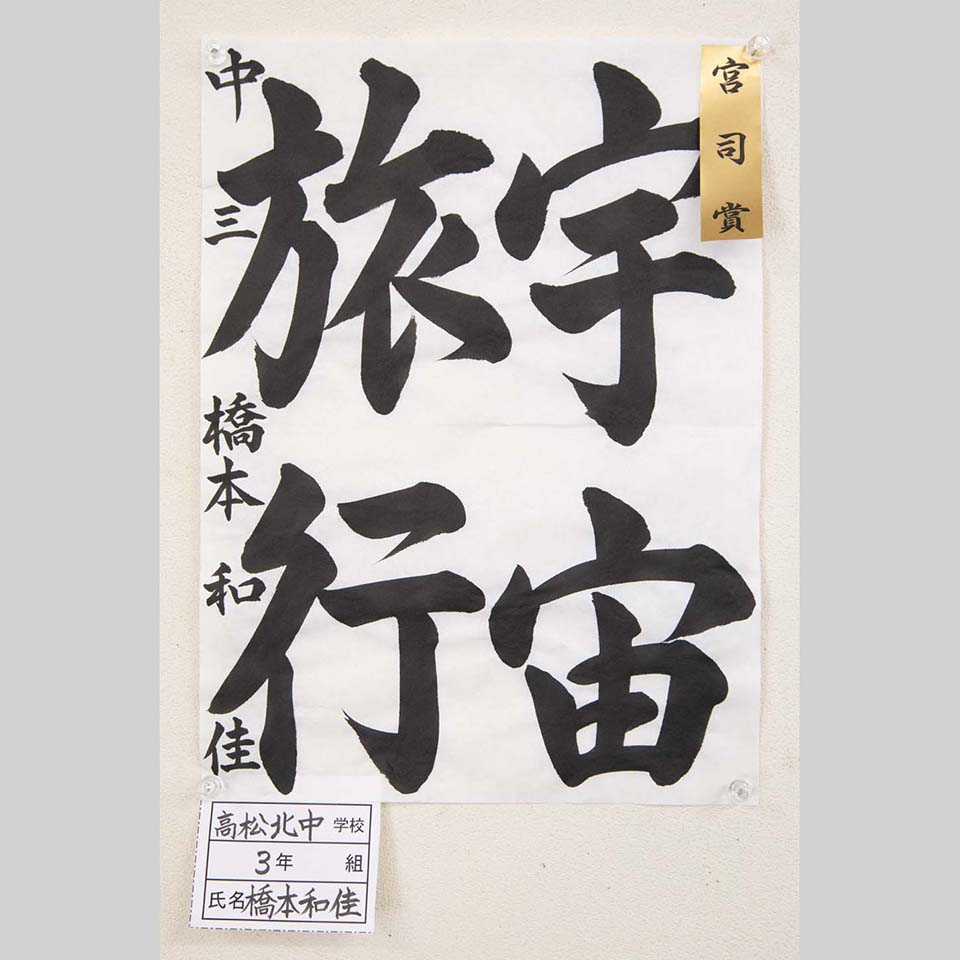 宮司賞
宇宙
旅行
中三 橋本和佳
高松北中 学校
3年 組
氏名 橋本和佳